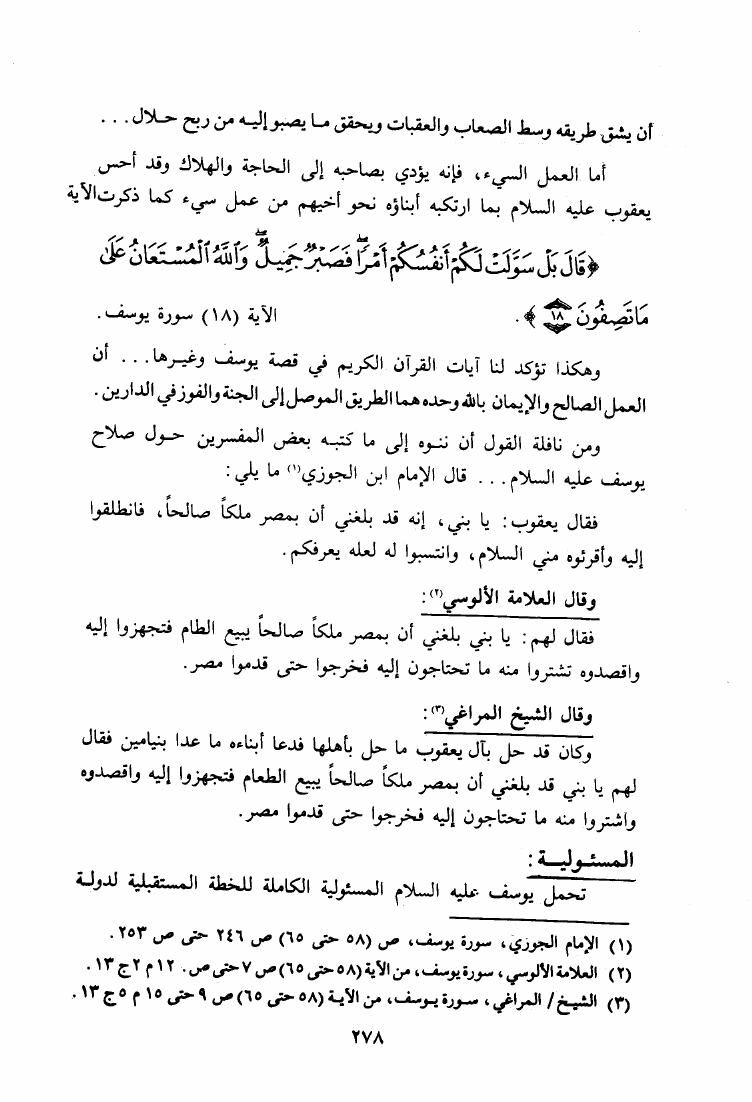 أن يشق طريقه وسط الصعاب والعقبات ويحقق مـا يصبو إليـه من ربح حـلال . . .
أما العمل السيء، فإنه يؤدي بصاحبه إلى الحاجة والهلاك وقد أحس
يعقوب عليه السلام بما ارتكبه أبناؤه نحو أخيهم من عمل سيء كما ذكرت الآية
﴿قَالَ بَلْ سَوَّلَتْ لَكُمْ أَنفُسُكُمْ أَمْرًا ۖ فَصَبْرٌ جَمِيلٌ ۖ وَٱللَّهُ ٱلْمُسْتَعَانُ عَلَىٰ
مَا تَصِفُونَ ١٨﴾. الآية (١٨) سورة يوسف.
وهكذا تؤكد لنا آيات القرآن الكريم في قصة يوسف وغيـرها. . . أن
العمل الصالح والإيمان بالله وحده هما الطريق الموصل إلى الجنة والفوز في الدارين.
ومن نافلة القول أن ننـوه إلى ما كتبـه بعض المفسرين حـول صلاح
يوسف عليه السلام. . . قال الإمام ابن الجوزي(١) ما يلي:
فقال يعقوب: يا بني، إنه قد بلغني أن بمصر ملكاً صالحاً، فانطلقوا
إليه وأقرئوه مني السلام، وانتسبوا له لعله يعرفكم.
وقال العلامة الألوسي(٢):
فقال لهم: يا بني بلغني أن بمصر ملكاً صالحاً يبيع الطام فتجهزوا إليه
واقصدوه تشتروا منه ما تحتاجون إليه فخرجوا حتى قدموا مصر.
وقال الشيخ المراغي(٣):
وكان قد حل بآل يعقوب ما حل بأهلها فدعا أبناءه ما عدا بنيامين فقال
لهم يا بني قد بلغني أن بمصر ملكاً صالحاً يبيع الطعام فتجهزوا إليه واقصدوه
واشتروا منه ما تحتاجون إليه فخرجوا حتى قدموا مصر.
المسئوليـة:
تحمل يوسف عليه السلام المسئولية الكاملة للخطة المستقبلية لدولـة
(١) الإمام الجوزي، سورة يوسف، ص (٥٨ حتى ٦٥) ص ٢٤٦ حتى ص ٢٥٣.
(٢) العلامة الألوسي، سورة يوسف، من الآية (٥٨ حتى ٦٥) ص ٧ حتى ص. ١٢ م ٢ ج ١٣.
(٣) الشيخ/ المراغي، سـورة يـوسف، من الآيـة (٥٨ حتى ٦٥) ص ٩ حتى ١٥ م ٥ ج ١٣.
٢٧٨